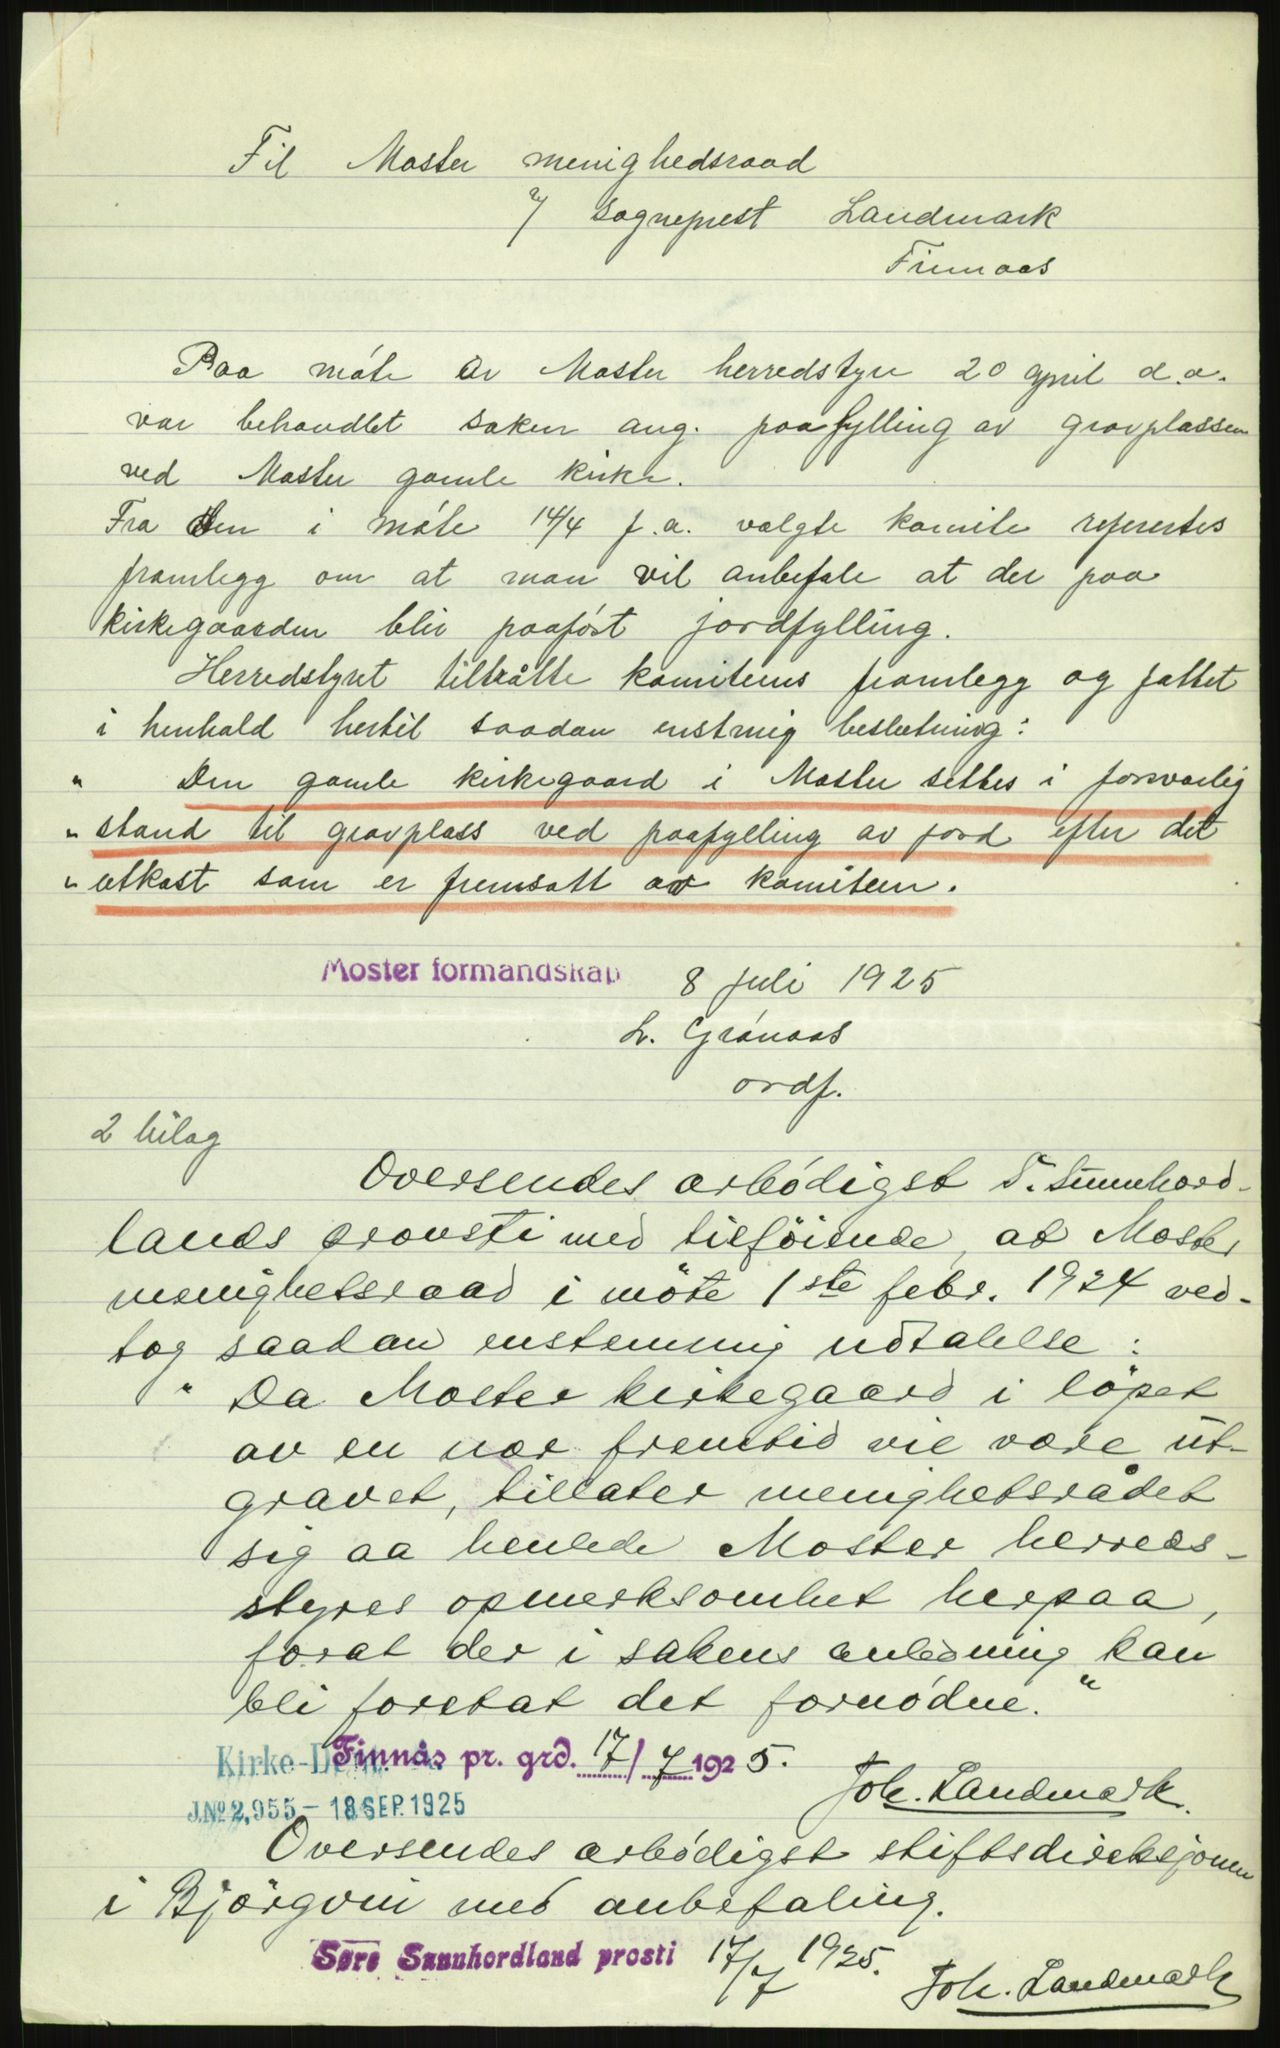 Til Moster menighedsraad
v/ sogneprest Landmark
Finnaas
Paa møte av Moster herredstyre 20 april d.a.
var behandlet saken ang. paafylling av gravplassen
ved Moster gamle kirke.
Fra den i møte 14/4 f.a. valgte komite refertes
framlegg om at man vil anbefale at der paa
kirkegaarden blir paaført jordfylling.
Herredstyret tiltråtte komiteens framlegg og fattet
i henhold hertil saadan enstmig beslutning:
" Den gamle kirkegaard i Moster settes i forsvarlig
" stand til gravplass ved paafylling av jord efter det
" utkast som er fremsatt av komiteen.
Moster formandskap 8 juli 1925
L. Grónaas
ordf.
2 bilag
Oversendes ærbódigst S. Sunnhord-
lands provsti med tilföiende, at Moster
menighetsraad i möte 1ste febr. 1924 ved-
tog saadan enstemmig udtalelse:
" Da Moster kirkegaard i löpet
av en nær fremtid vil være ut-
gravet, tillater menighetsrådet
sig aa henlede Moster herreds-
styres opmerksomhet herpaa,
forat der i sakens anledning kan
bli foretat det fornódne."
Kirke-D
Finnås pr. grd. 17/7 1925.
Joh. Landmark.
J.No 2,955 - 18 SEP. 1925
Oversendes ærbódigst stiftsdireksjonen
i Björgvin med anbefaling.
Søre Sunnhordland prosti 17/7 1925.
Joh. Landmark